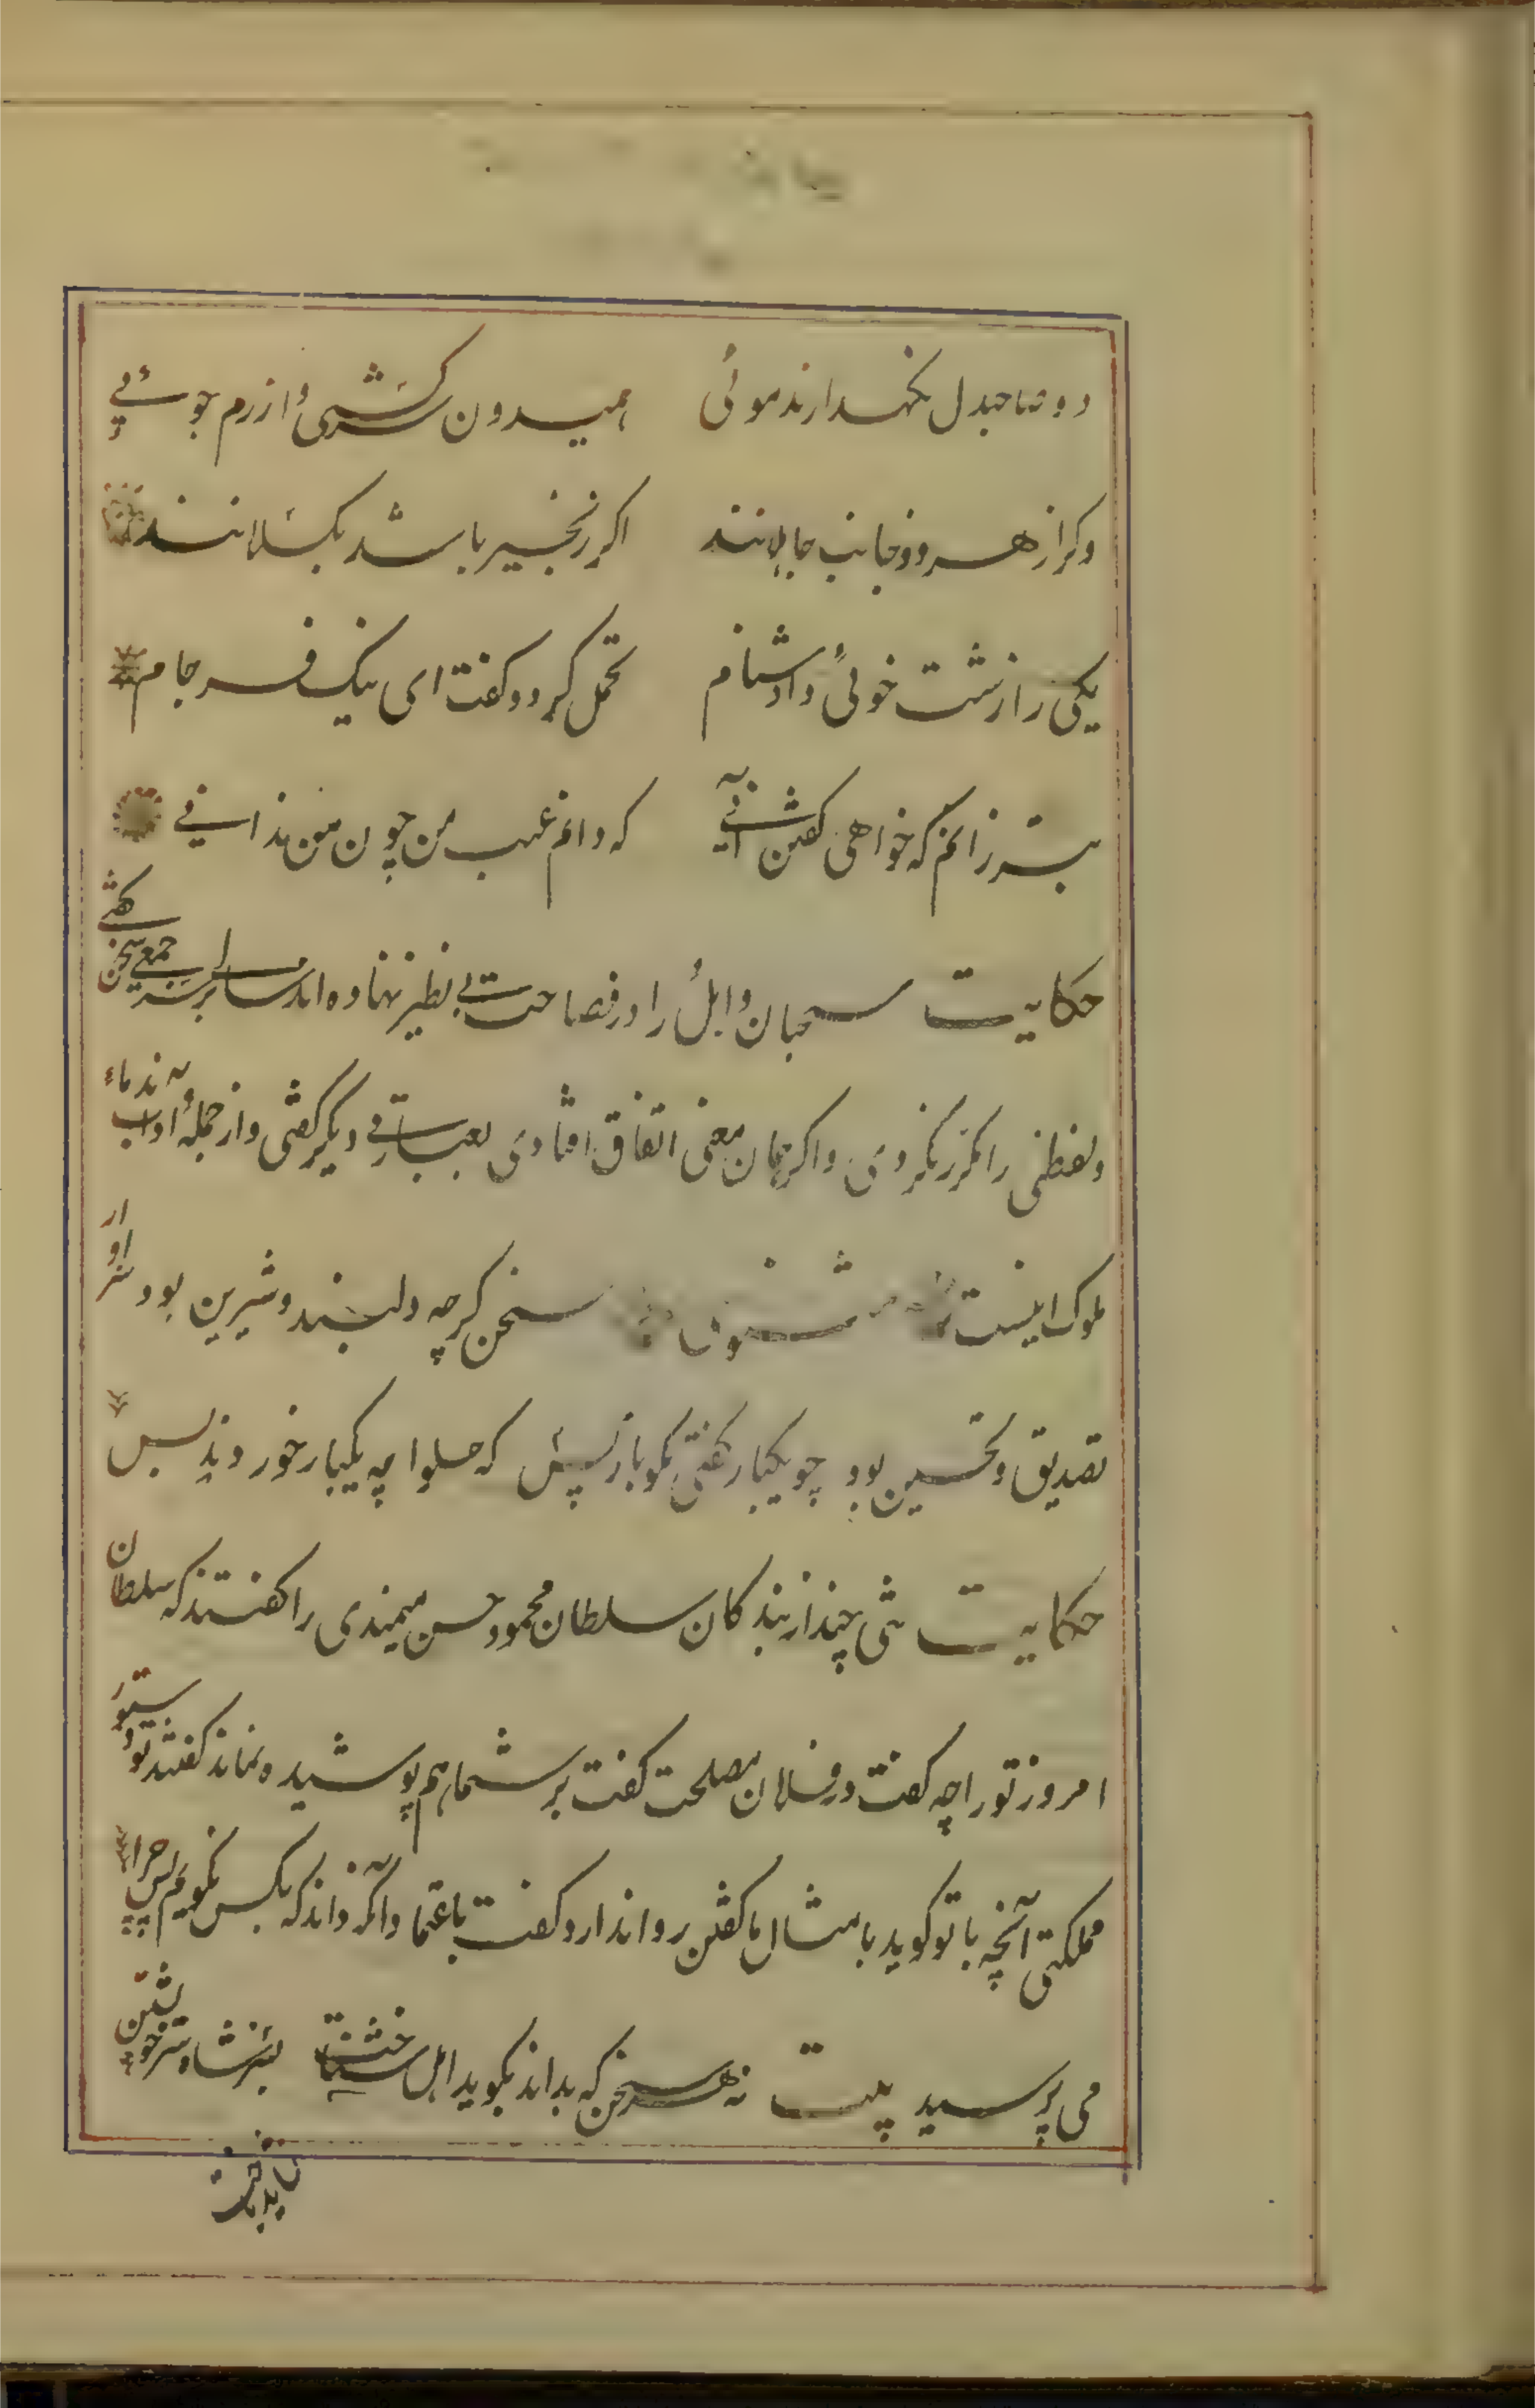 دو صاحبدل نگهدارند موئی همیدون سرکشی و ازرم جوئے
وکر از هر دو جانب جاهلانند اکر زنجیر باشد بکسلانند
یکی را زشت خوئی داد دشنام تحمل کرد و کفت ای نیک فرجام
بتر زانم که خواهی کفتن آنے که دانم عیب من چون من ندانے
حکایت سحبان وایل را در فصاحت بی نظیر نهاده اند سالے بر سر جمعے سخن کفتے
و لفظی را مکرر نکردی و اکر همان معنی اتفاق افتادی بعبارتے دیکر کفتی و از جملۀ آداب ندماء
ملوک اینست مثنوی سخن کرچه دلبند و شیرین بود سزاوار
تصدیق و تحسین بود چو یکبار کفتی مکو باز پس که حلوا چه یکبار خوردند بس
حکایت تنی چند از بندکان سلطان محمود حسن میمندی را کفتند که سلطان
امروز تو را چه کفت در فلان مصلحت کفت بر شما هم پوشیده نماند کفتند تو دستور
مملکتی آنچه با تو کوید با مثال ما کفتن روا ندارد کفت باعتماد آنکه داند که بکس نکویم پس چرا
می پرسید بیت نه هر سخن که بداند بکوید اهل شناخت بسر شاه سر خویشتن
نباید باخت